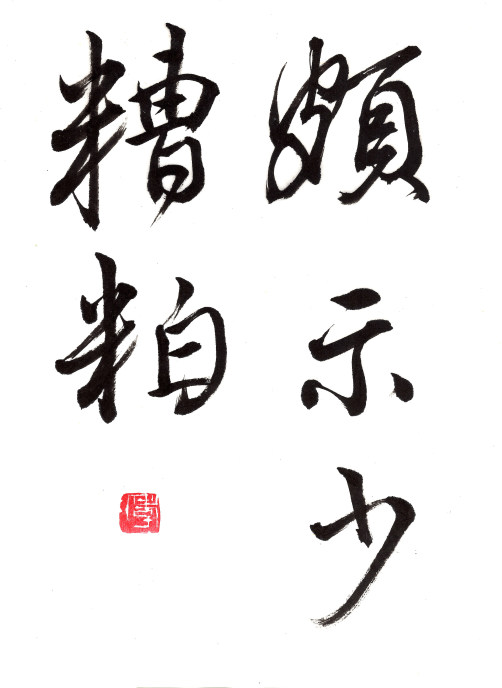 頗示少
糟粕